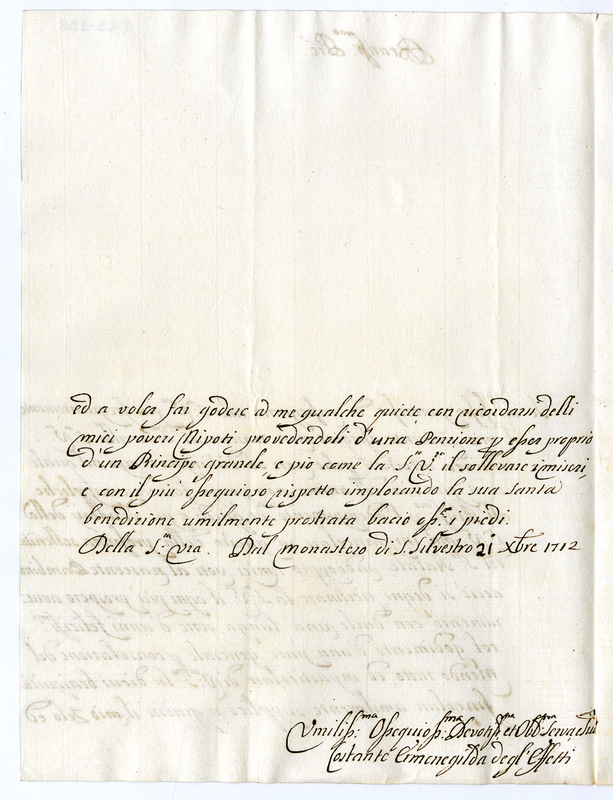 ed a voler far godere a me qualche quiete con ricordarsi delli
miei poveri Nipoti provedendoli d'una Penzione p esser proprio
d'un Principe grande, e pio come la S.tà V.ra il sollevare i miseri,
e con il più ossequioso rispetto implorando la sua santa
benedizione umilmente prostrata bacio oss.te i piedi.
Della S.tà Vra. Dal monastero di S. Silvestro 21 Xbre 1712
Umiliss:ma Ossequioss:ma Devotiss et Obb Serva
Costante Ermenegilda degl'Effetti